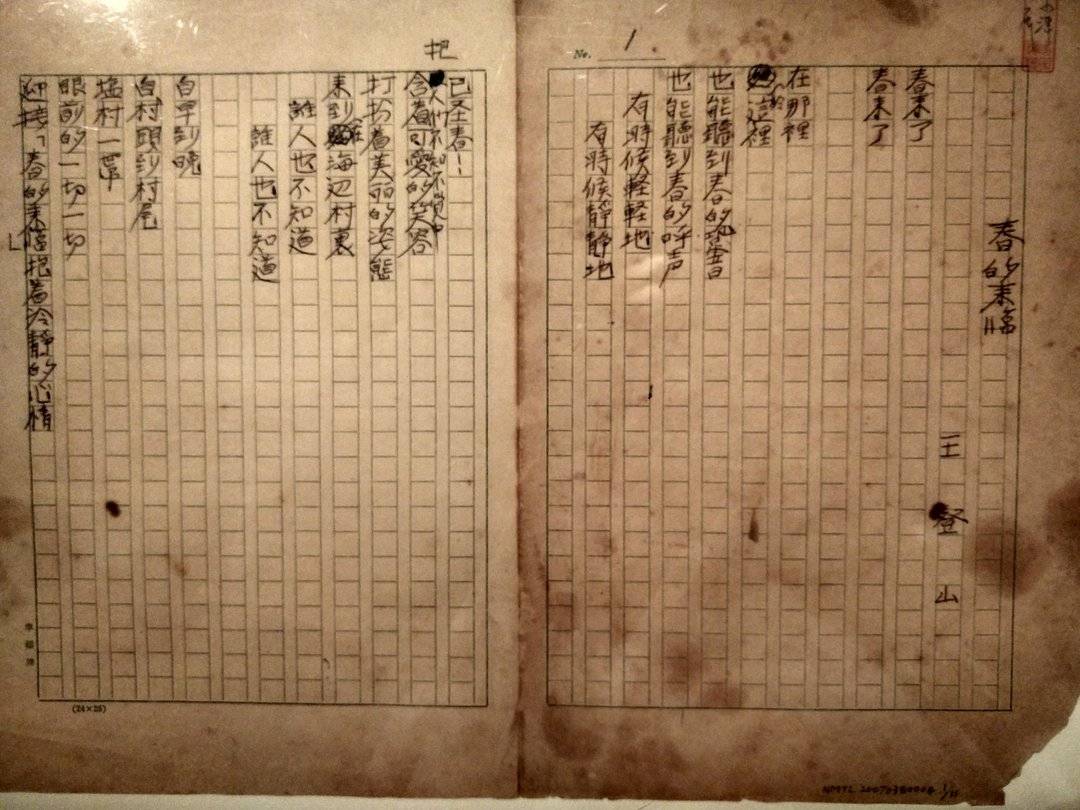 No. 1
春的来臨
王登山
春来了
春来了
在那裡
於這裡
也能聽到春的跫音
也能聽到春的呼声
有時候軽軽地
有時候静静地
已圣春！
把人們不知不覚中
含着可愛的笑容
打扮着美丽的姿態
来到在海辺村裏
誰人也不知道
誰人也不知道
自早到晚
自村頭到村尾
塩村一帯
眼前的一切一切
迎接「春的来臨」抱着冷静的心情
(24×25)